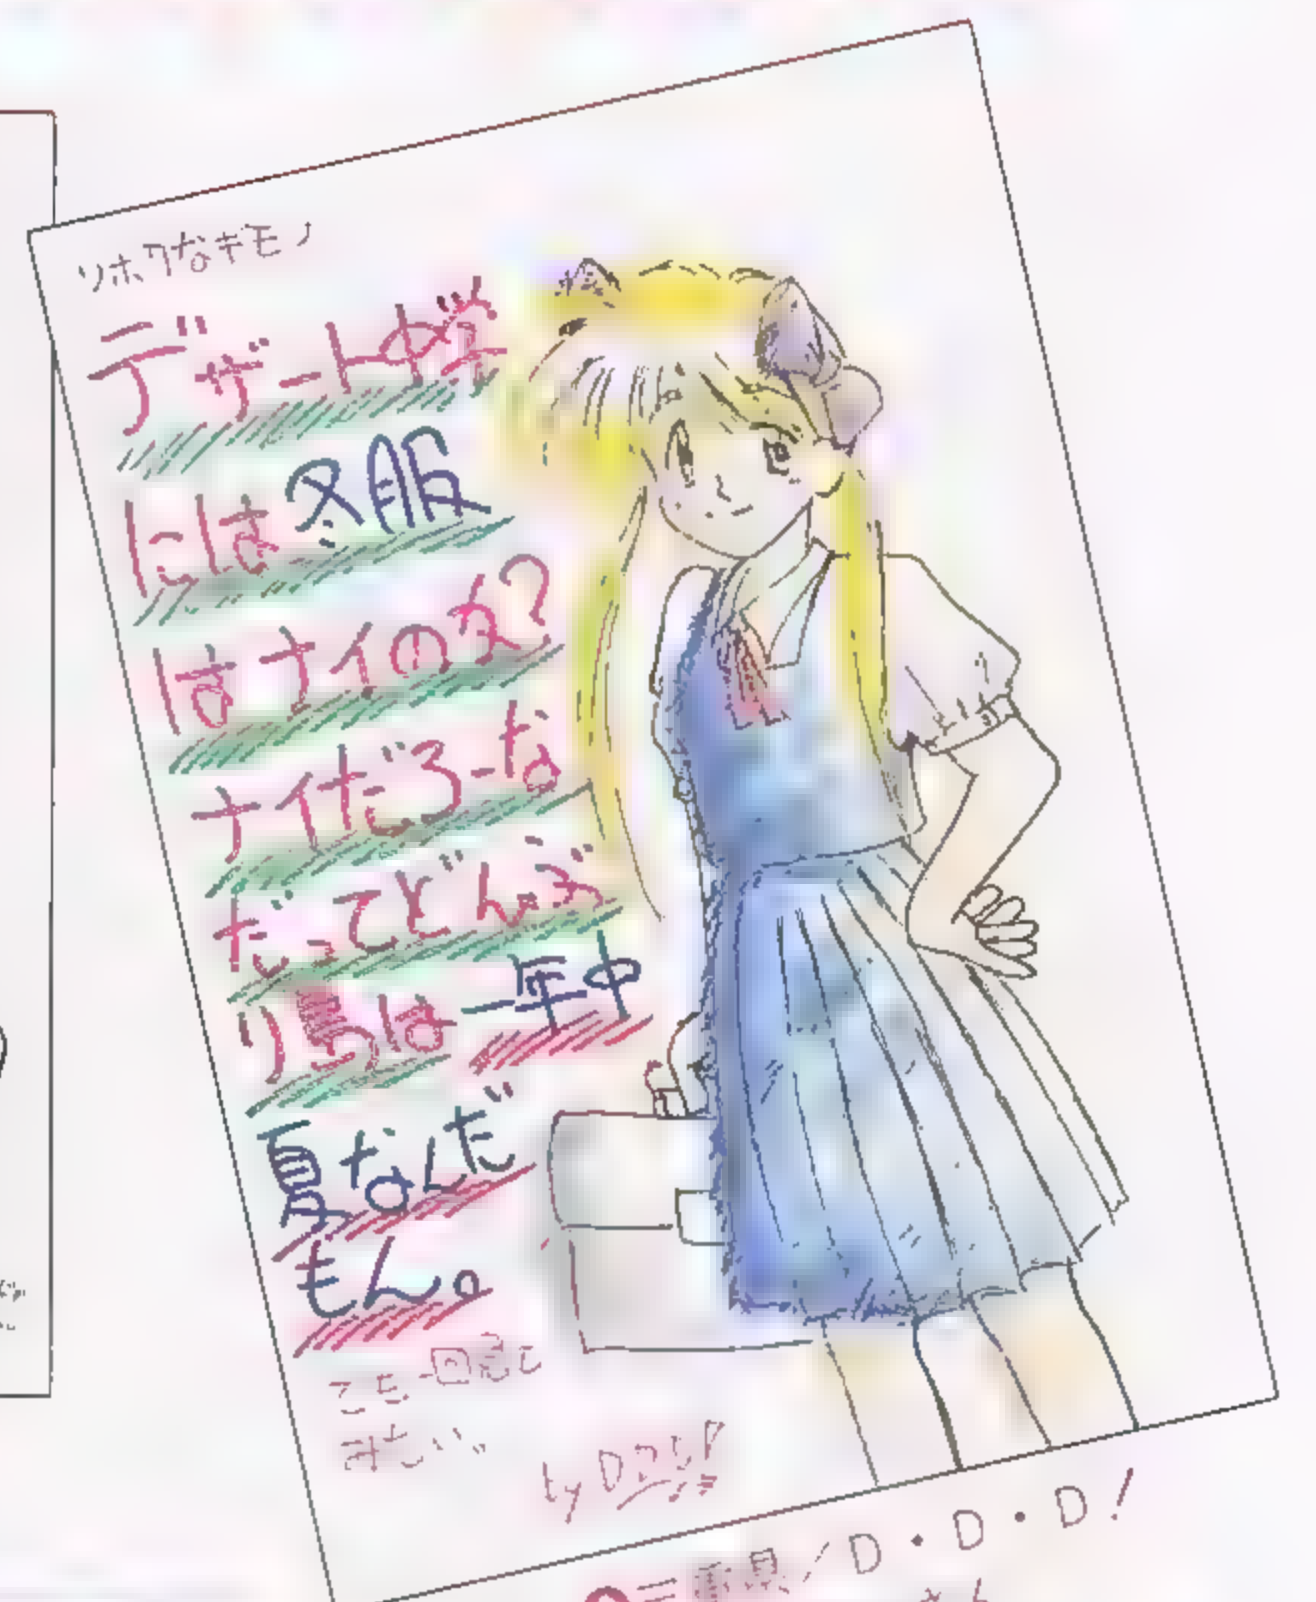 ソボクなギモン
デザート中学
には冬服
はナイのタ?
ナイだろーな
だってどんぶ
り島は一年中
夏なんだ
もん。
by D.D.D!
三重県/D・D・D!
さん